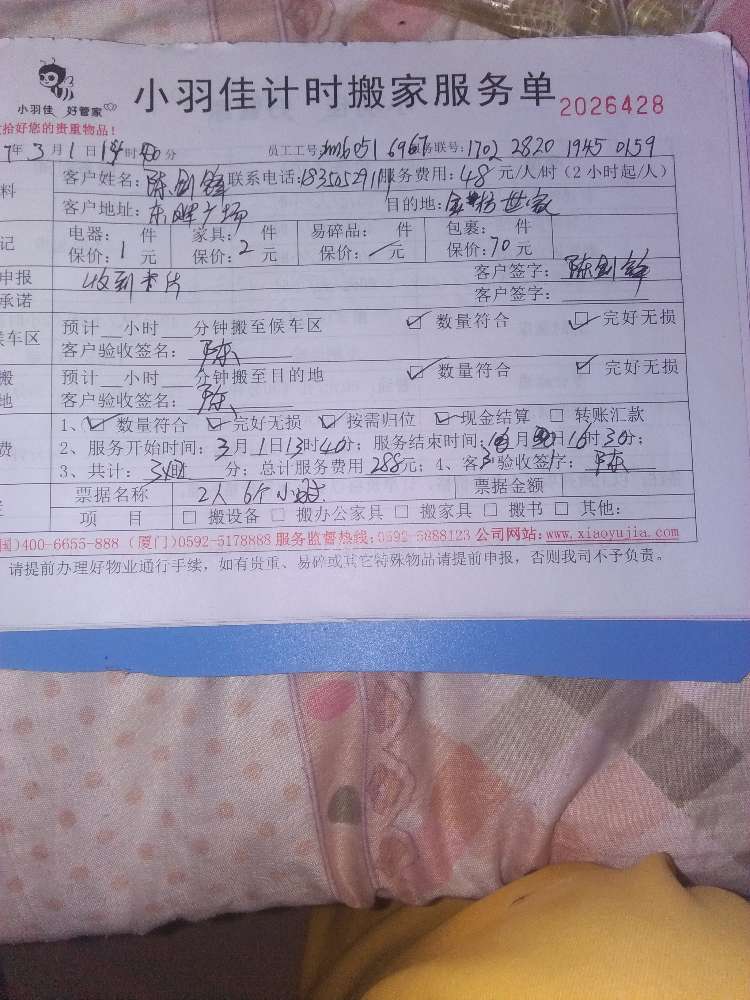 小羽佳 好管家
小羽佳计时搬家服务单 2026428
拾好您的贵重物品！
7年3月1日 时 分 员工工号: 务联号: 1702 2820 1945 0159
料 客户姓名: 陈剑锋 联系电话: 服务费用: 48元/人/时（2小时起/人）
客户地址: 东 广场 目的地: 世家
记 电器: 件 家具: 件 易碎品: 件 包裹: 件
保价: 1元 保价: 2元 保价: 元 保价: 70元
申报 收到卡片 客户签字: 陈剑锋
承诺 客户签字:
候车区 预计__小时__分钟搬至候车区 ☑ 数量符合 ☑ 完好无损
客户验收签名: 陈
搬 预计__小时__分钟搬至目的地 ☑ 数量符合 ☑ 完好无损
地 客户验收签名: 陈
1、☑ 数量符合 ☑ 完好无损 ☑ 按需归位 ☑ 现金结算 □ 转账汇款
费 2、服务开始时间: 3月1日13时40分; 服务结束时间: 月 日16时30分;
3、共计: 3 分; 总计服务费用288元; 4、客户验收签字: 陈
票据名称 2人6个小时 票据金额
项 目 □ 搬设备 □ 搬办公家具 □ 搬家具 □ 搬书 □ 其他:
国)400-6655-888 (厦门)0592-5178888 服务监督热线:0592-5888123 公司网站:www.xiaoyujia.com
请提前办理好物业通行手续，如有贵重、易碎或其它特殊物品请提前申报，否则我司不予负责。